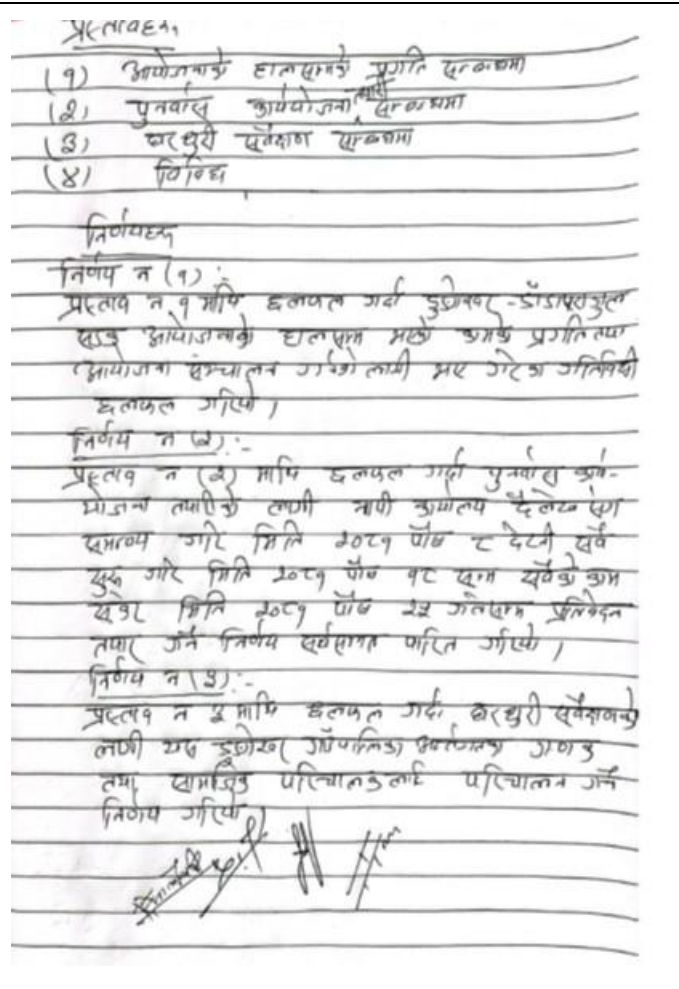 प्रस्तावहरु
(१) आयोजनाको हालसम्मको प्रगति सम्बन्धमा
(२) पुनर्वास कार्ययोजना तयारी सम्बन्धमा
(३) घरधुरी सर्वेक्षण सम्बन्धमा
(४) विविध
निर्णयहरु
निर्णय न (१) :
प्रस्ताव न १ माथि छलफल गर्दा
सडक आयोजनाको हालसम्म भएको कामको प्रगति तथा
आयोजना संञ्चालन गर्नको लागी भए गरेका गतिविधी
छलफल गरियो ।
निर्णय न (२) :-
प्रस्ताव न (२) माथि छलफल गर्दा पुनर्वास कार्य-
योजना तयारीको लागी नापी कार्यालय दैलेख संग
समन्वय गरि मिति २०८१ पौष ८ देखी सर्वे
सुरु गरि मिति २०८१ पौष १८ सम्म सर्वेको काम
सकेर मिति २०८१ पौष २५ गतेसम्म प्रतिवेदन
तयार गर्ने निर्णय सर्वसम्मत पारित गरियो ।
निर्णय न (३) :-
प्रस्ताव न ३ माथि छलफल गर्दा घरधुरी सर्वेक्षणको
लागी यस गाँउपालिका गणक
तथा सामाजिक परिचालकलाई परिचालन गर्ने
निर्णय गरियो ।